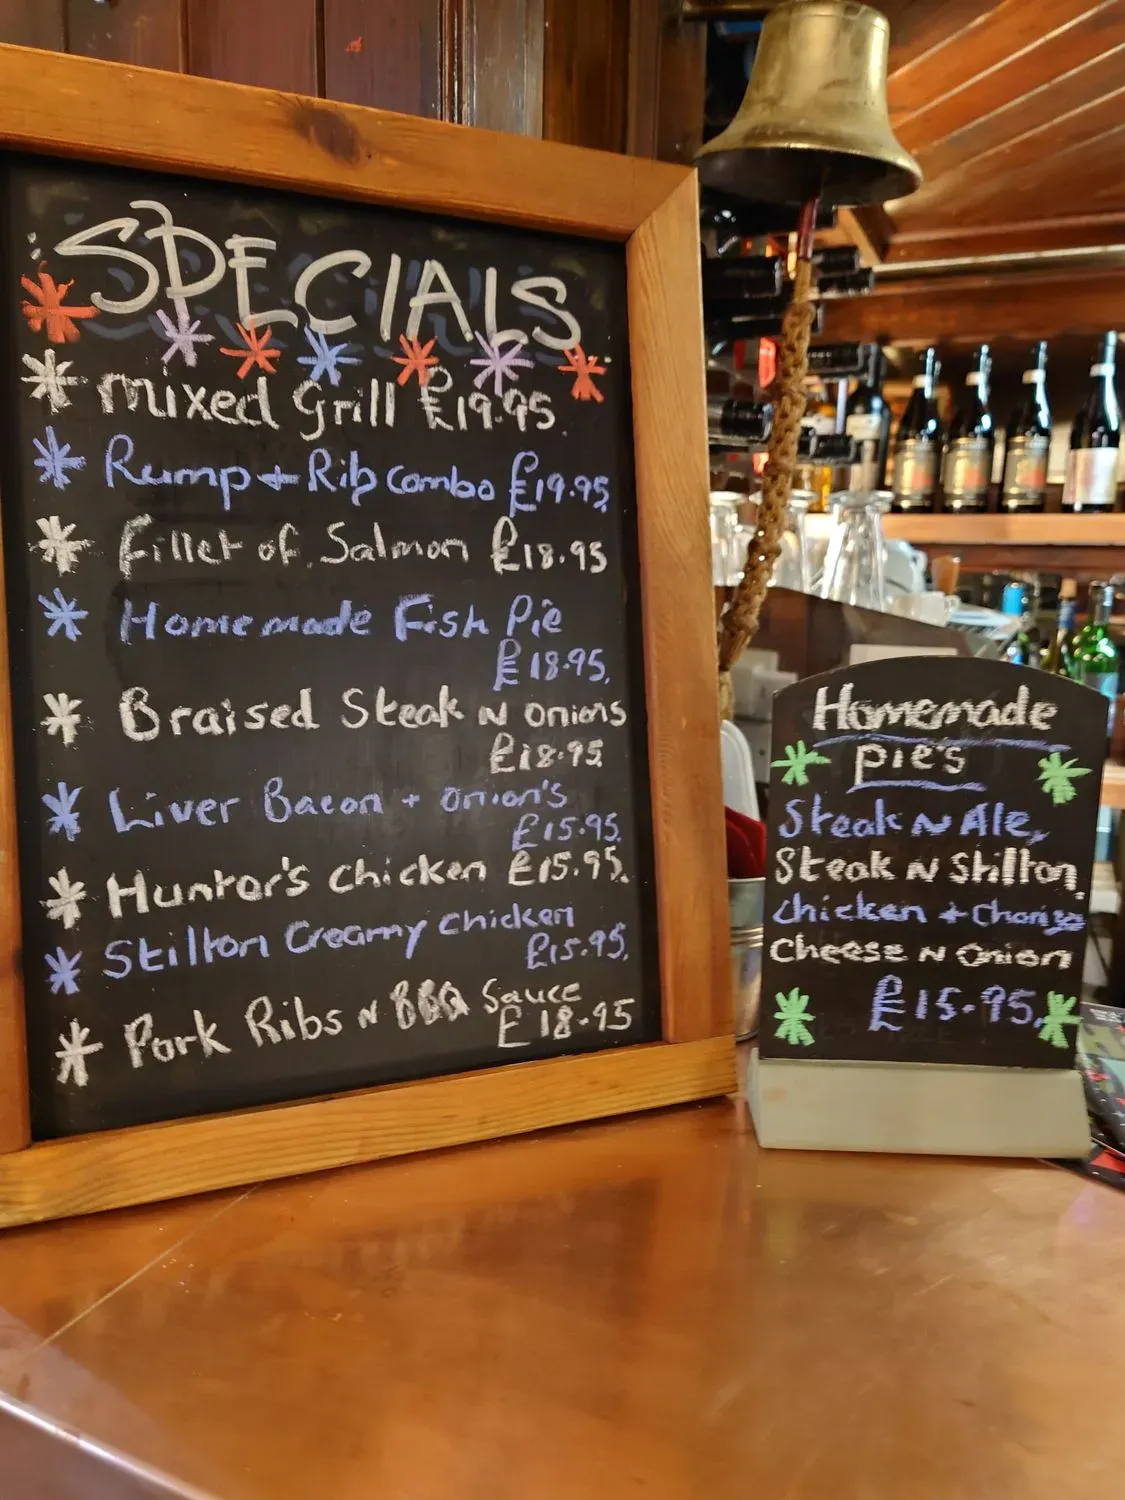 SPECIALS
mixed Grill £19.95
Rump + Rib Combo £19.95
Fillet of Salmon £18.95
Homemade Fish Pie
£18.95
Braised Steak N Onions
£18.95
Liver Bacon + Onion's
£15.95
Huntor's chicken £15.95
Stilton Creamy chicken
£15.95
Pork Ribs N BBQ Sauce
£18.95
Homemade
pie's
Steak N Ale,
Steak N Stilton,
chicken + Chorizo
Cheese N Onion
£15.95